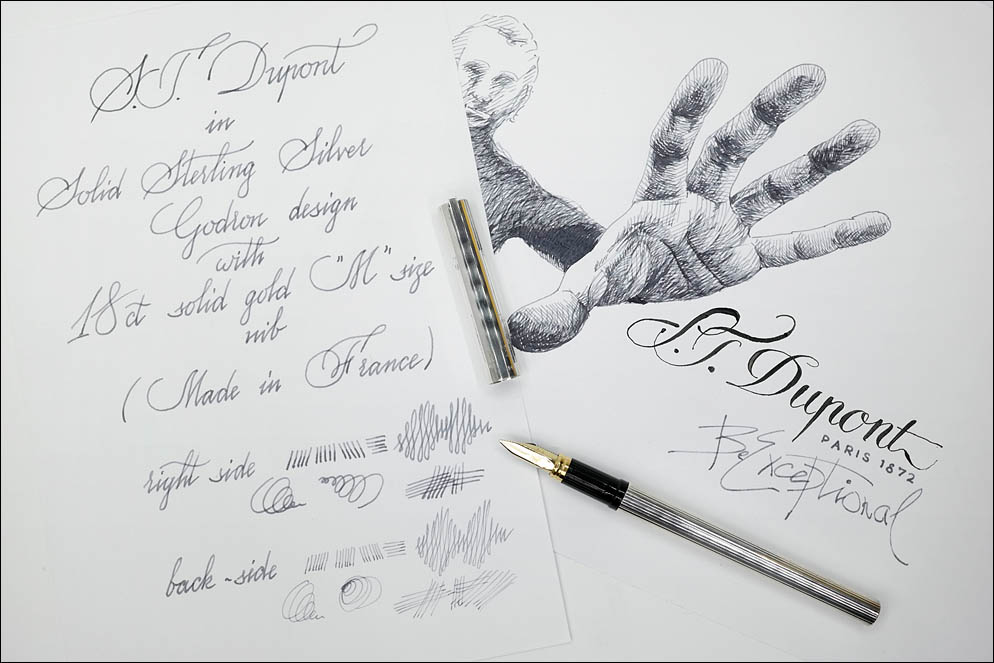 S.T. Dupont
in
Solid Sterling Silver
Godron design
with
18ct solid gold "M" size
nib
(Made in France)
right side
back-side
S.T. Dupont
PARIS 1872
Be Exceptional